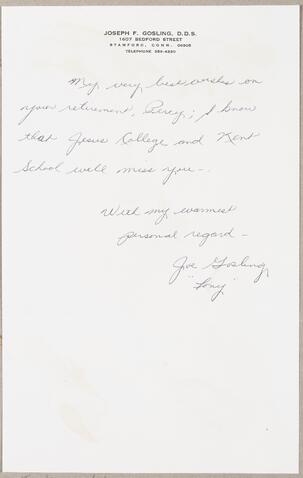 JOSEPH F. GOSLING, D.D.S.
1607 BEDFORD STREET
STAMFORD, CONN. 06905
TELEPHONE 359-4330
My very best wishes on
your retirement, Percy; I know
that Jesus College and Kent
School will miss you -.
With my warmest
personal regard -
Joe Gosling
"Tony"